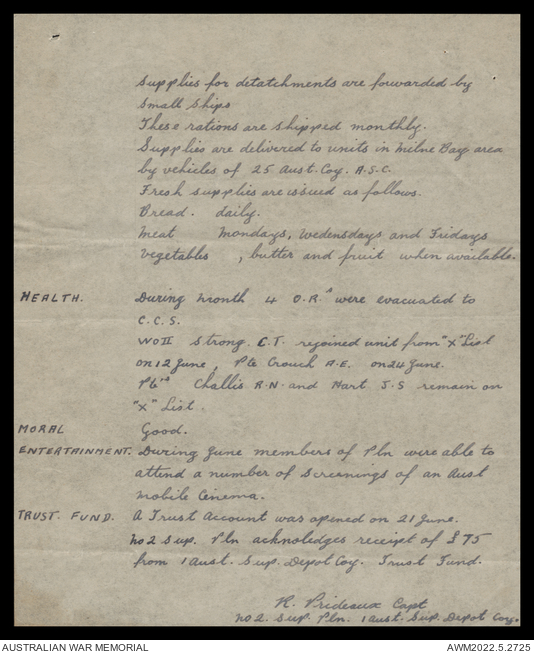 supplies for detatchments are fowarded by
small ships
These rations are shipped monthly.
Supplies are delivered to units in Milne Bay area
by vehicles of 25 Aust. Coy. A.S.C.
Fresh supplies are issued as follows.
Bread. daily.
Meat Mondays, Wedensdays and Fridays
Vegetables , butter and fruit when available.
HEALTH. During month 4 O.R.s were evacuated to
C.C.S.
WOII Strong. C.T. rejoined unit from "X" List
on 12 June, Pte Crouch A.E. on 24 June.
Ptes Challis R.N. and Hart J.S remain on
"X" List.
MORAL Good.
ENTERTAINMENT. During June members of Pln were able to
attend a number of screenings of an Aust
Mobile Cinema.
TRUST. FUND. A Trust Account was opened on 21 June.
No 2 Sup. Pln acknoledges receipt of £75
from 1 Aust. Sup. Depot Coy. Trust Fund.
R. Prideaux Capt
No 2. Sup. Pln. 1 Aust. Sup. Depot Coy.
AUSTRALIAN WAR MEMORIAL AWM2022.5.2725